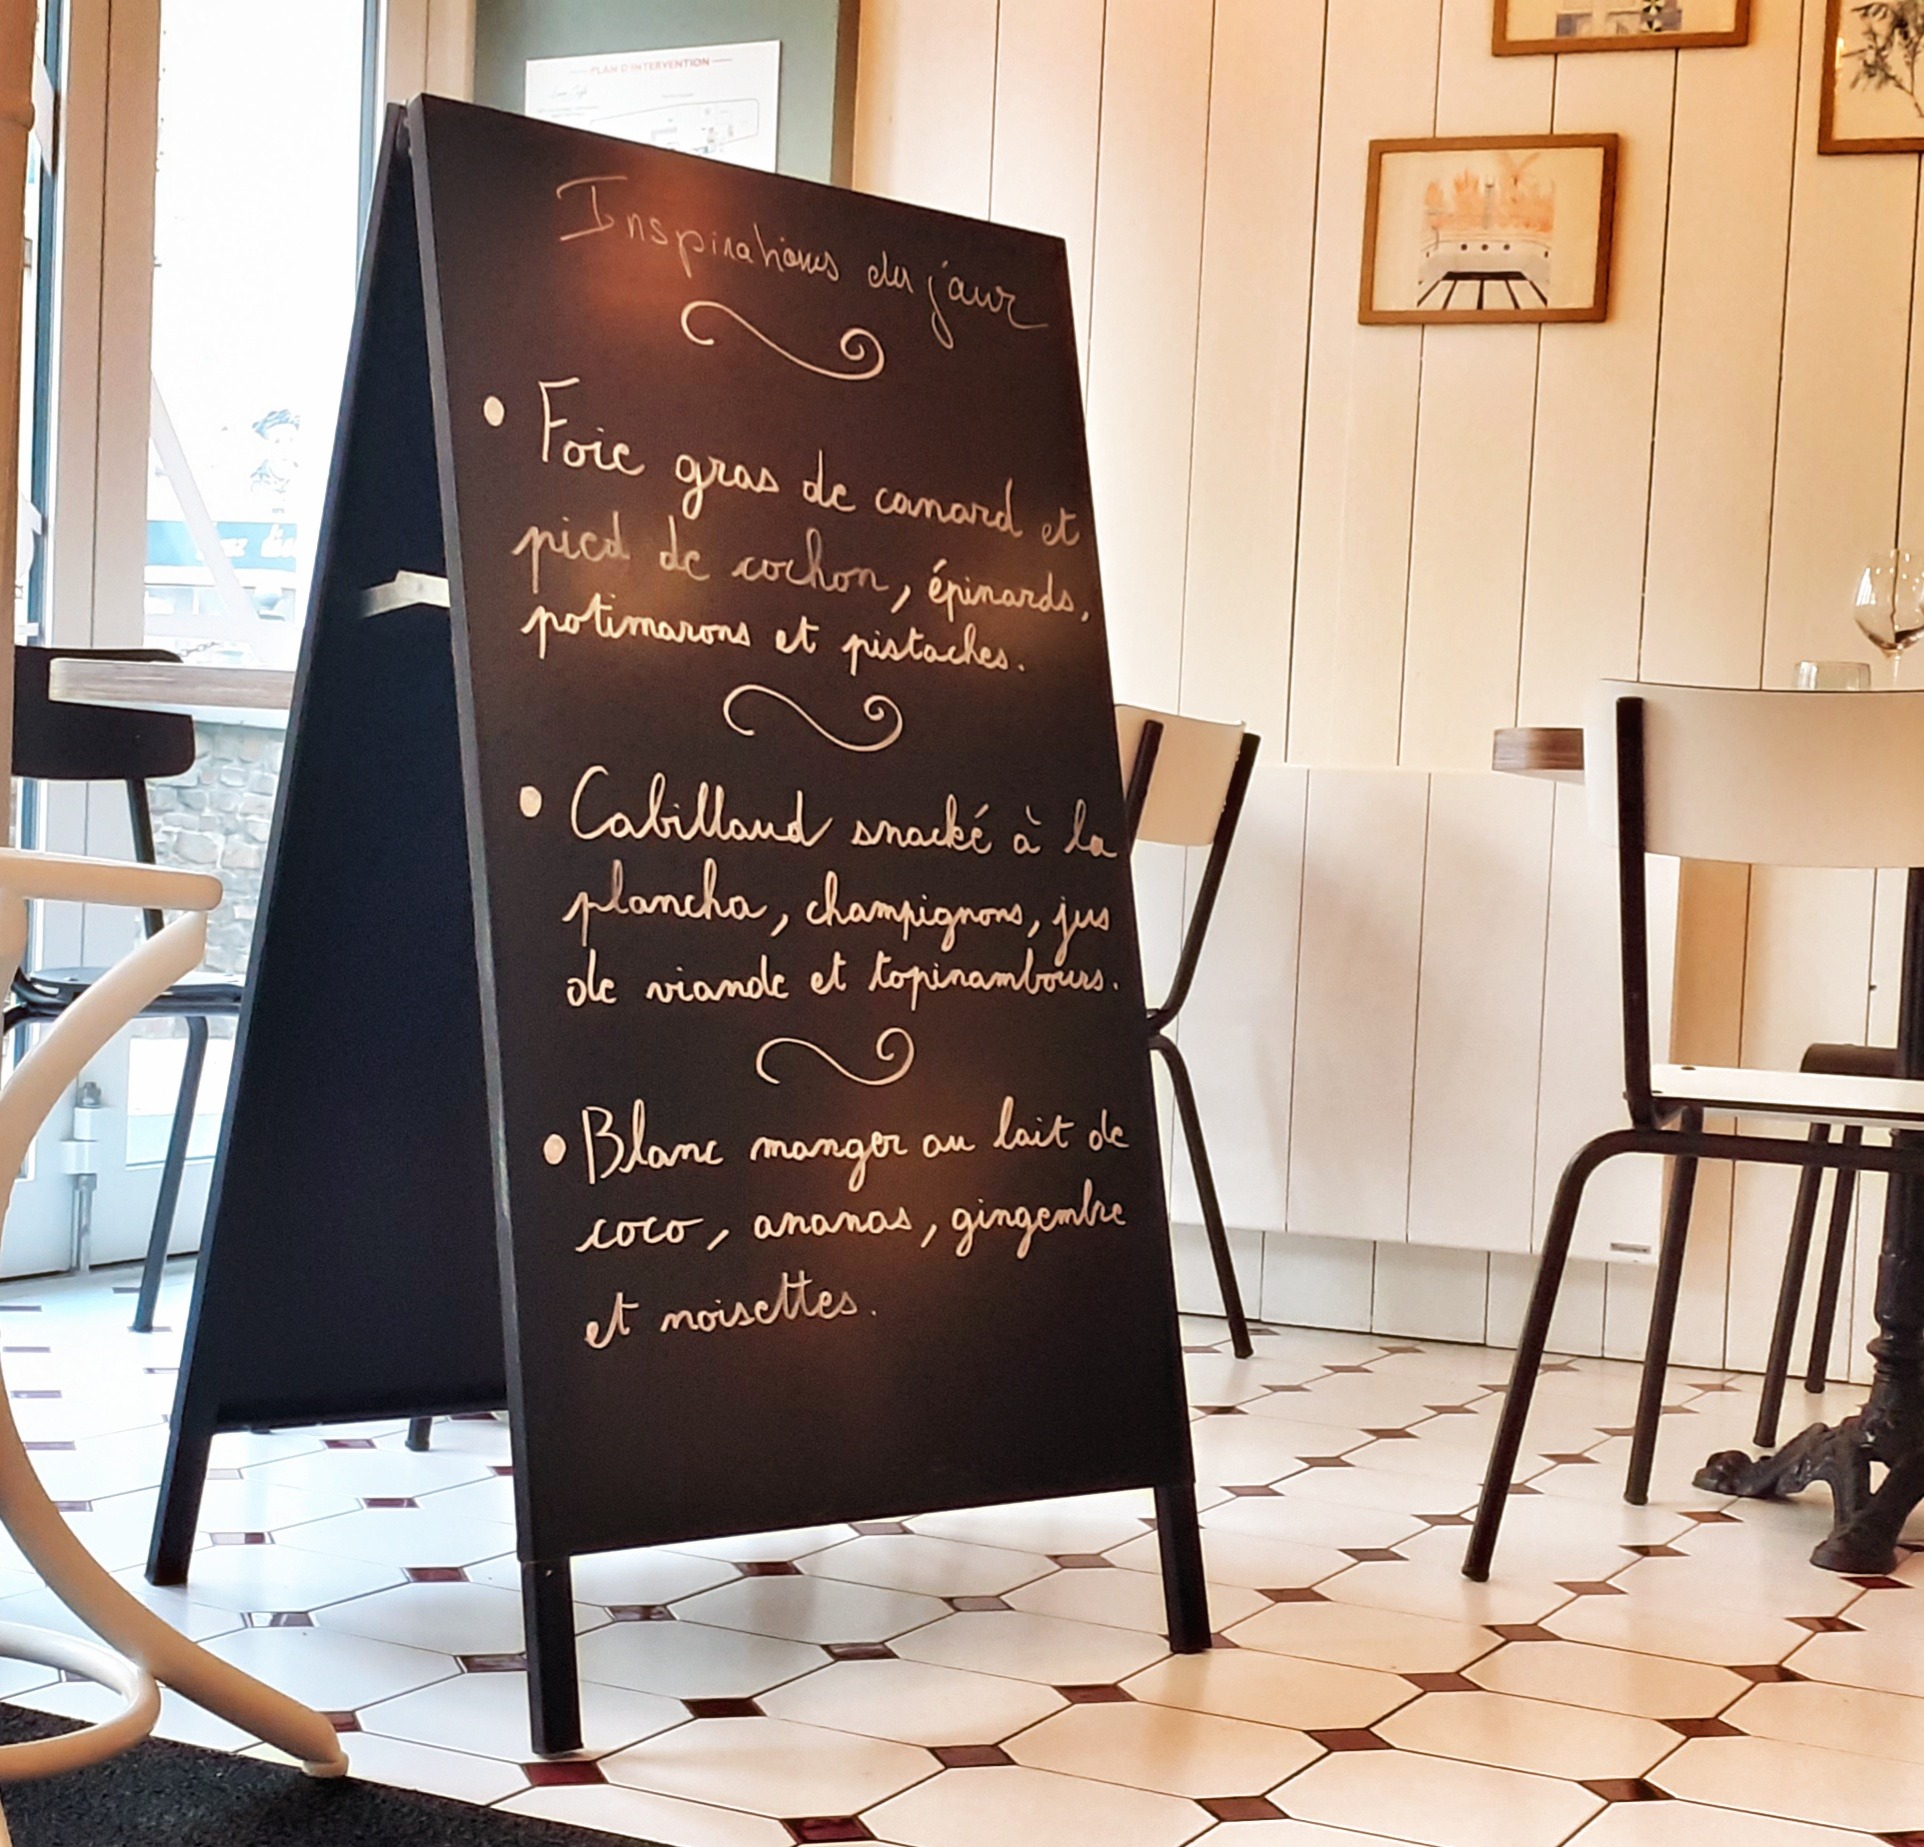 PLAN D'INTERVENTION
Inspirations du jour
• Foie gras de canard et
pied de cochon, épinards,
potimarons et pistaches.
• Cabillaud snacké à la
plancha, champignons, jus
de viande et topinambours.
• Blanc manger au lait de
coco, ananas, gingembre
et noisettes.